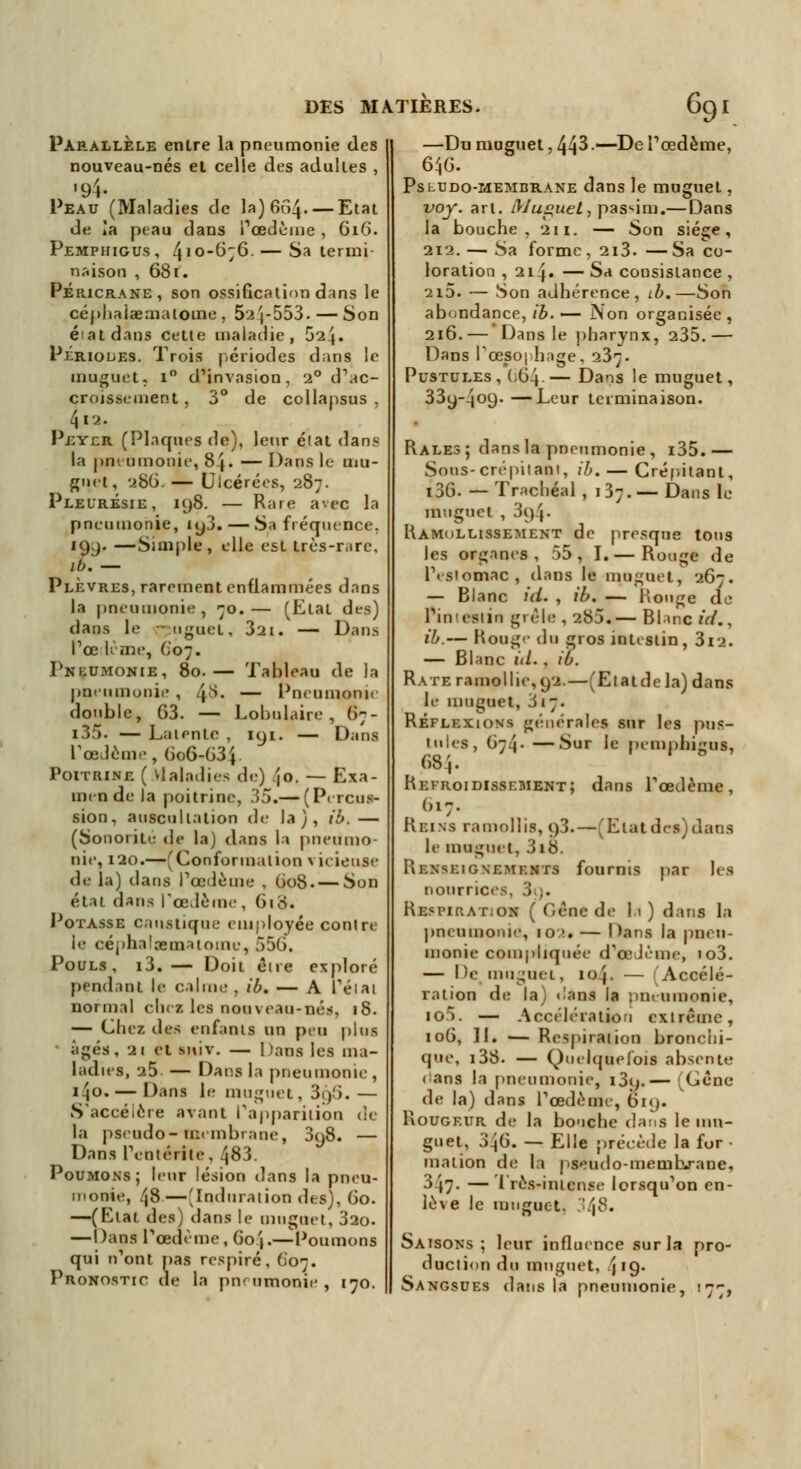 DES MATIÈRES. 691
PARALLÈLE entre la pneumonie des
nouveau-nés et celle des adultes ,
194.
PEAU (Maladies de la) 604. — Etat
de la peau dans l'œdème , 616.
PEMPHIGUS, 410-676. — Sa termi-
naison , 681.
PÉRICRANE , son ossification dans le
céphalæmatome, 524-553. — Son
état dans cette maladie, 524.
PÉRIODES. Trois périodes dans le
muguet, 1° d'invasion, 2° d'ac-
croissement, 3° de collapsus ,
412.
PEYER (Plaques de), leur état dans
la pneumonie, 84. — Dans le mu-
guet, 286. — Ulcérées, 287.
PLEURÉSIE, 198. — Rare avec la
pneumonie, 193. — Sa fréquence,
199. — Simple, elle est très-rare,
ib. —
PLÈVRES, rarement enflammées dans
la pneumonie, 70. — (Etat des)
dans le muguet, 321. — Dans
l'œdème, 607.
PNEUMONIE, 80. — Tableau de la
pneumonie, 48. — Pneumonie
double, 63. — Lobulaire, 67-
135. — Latente, 191. — Dans
l'œdème, 606-634.
POITRINE (Maladies de) 40. — Exa-
men de la poitrine, 35. — (Percus-
sion, auscultation de la), ib. —
(Sonorité de la) dans la pneumo-
nie, 120. — (Conformation vicieuse
de la) dans l'œdème , 608. — Son
état dans l'œdème, 618.
POTASSE caustique employée contre
le céphalæmatome, 556.
POULS, 13. — Doit être exploré
pendant le calme , ib. — A l'état
normal chez les nouveau-nés, 18.
— Chez des enfants un peu plus
âgés, 21 et suiv. — Dans les ma-
ladies, 25. — Dans la pneumonie,
140. — Dans le muguet, 395. —
S'accélère avant l'apparition de
la pseudo-membrane, 398. —
Dans l'entérite, 483.
POUMONS; leur lésion dans la pneu-
monie, 48. — (Induration des), 60.
— (Etat des) dans le muguet, 320.
— Dans l'œdème, 604. — Poumons
qui n'ont pas respiré, 607.
PRONOSTIC de la pneumonie , 170.
— Du muguet, 443. — De l'œdème,
646.
PSEUDO-MEMBRANE dans le muguet,
voy. art. Muguet, passim. — Dans
la bouche , 211. — Son siége,
212. — Sa forme, 213. — Sa co-
loration , 214. — Sa consistance ,
215. — Son adhérence, ib. — Son
abondance, ib. — Non organisée ,
216. — Dans le pharynx, 235. —
Dans l'œsophage, 237.
PUSTULES, 664. — Dans le muguet,
339-409. — Leur terminaison.
RALES; dans la pneumonie, 135. —
Sous-crépitant, ib. — Crépitant,
136. — Trachéal , 137. — Dans le
muguet , 394.
RAMOLLISSEMENT de presque tous
les organes , 55, I. — Rouge de
l'estomac , dans le muguet, 267.
— Blanc id. , ib. — Rouge de
l'intestin grêle , 285. — Blanc id.,
ib. — Rouge du gros intestin, 312.
— Blanc id., ib.
RATE ramollie, 92. — (Etat de la) dans
le muguet, 317.
RÉFLEXIONS générales sur les pus-
tules, 674. — Sur le pemphigus,
684.
REFROIDISSEMENT; dans l'œdème,
617.
REINS ramollis, 93. — (Etat des) dans
le muguet, 318.
RENSEIGNEMENTS fournis par les
nourrices, 39.
RESPIRATION (Gêne de la) dans la
pneumonie, 102. — Dans la pneu-
monie compliquée d'œdème, 103.
— De muguet, 104. — (Accélé-
ration de la) dans la pneumonie,
105. — Accélération extrême,
106, II. — Respiration bronchi-
que, 138. — Quelquefois absente
dans la pneumonie, 139. — (Gêne
de la) dans l'œdème, 619.
ROUGEUR de la bouche dans le mu-
guet, 346. — Elle précède la for-
mation de la pseudo-membrane,
347. — Très-intense lorsqu'on en-
lève le muguet, 348.
SAISONS ; leur influence sur la pro-
duction du muguet, 419.
SANGSUES dans la pneumonie, 177,